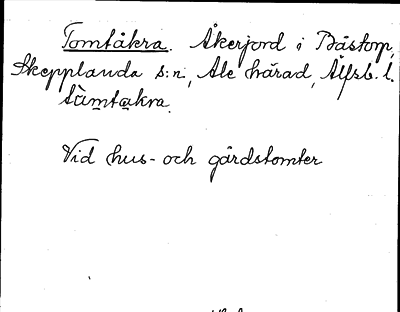 Tomtåkra. Åkerjord i Båstorp,
Skepplanda s:n, Ale härad, Älfsb. l.
tåmtakra.
Vid hus- och gårdstomter